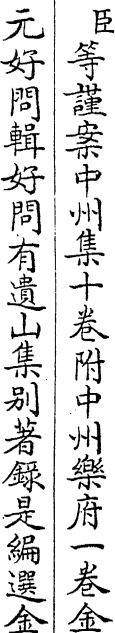 臣等謹案中州集十卷附中州樂府一卷金
元好問輯好問有遺山集別著錄是編選金